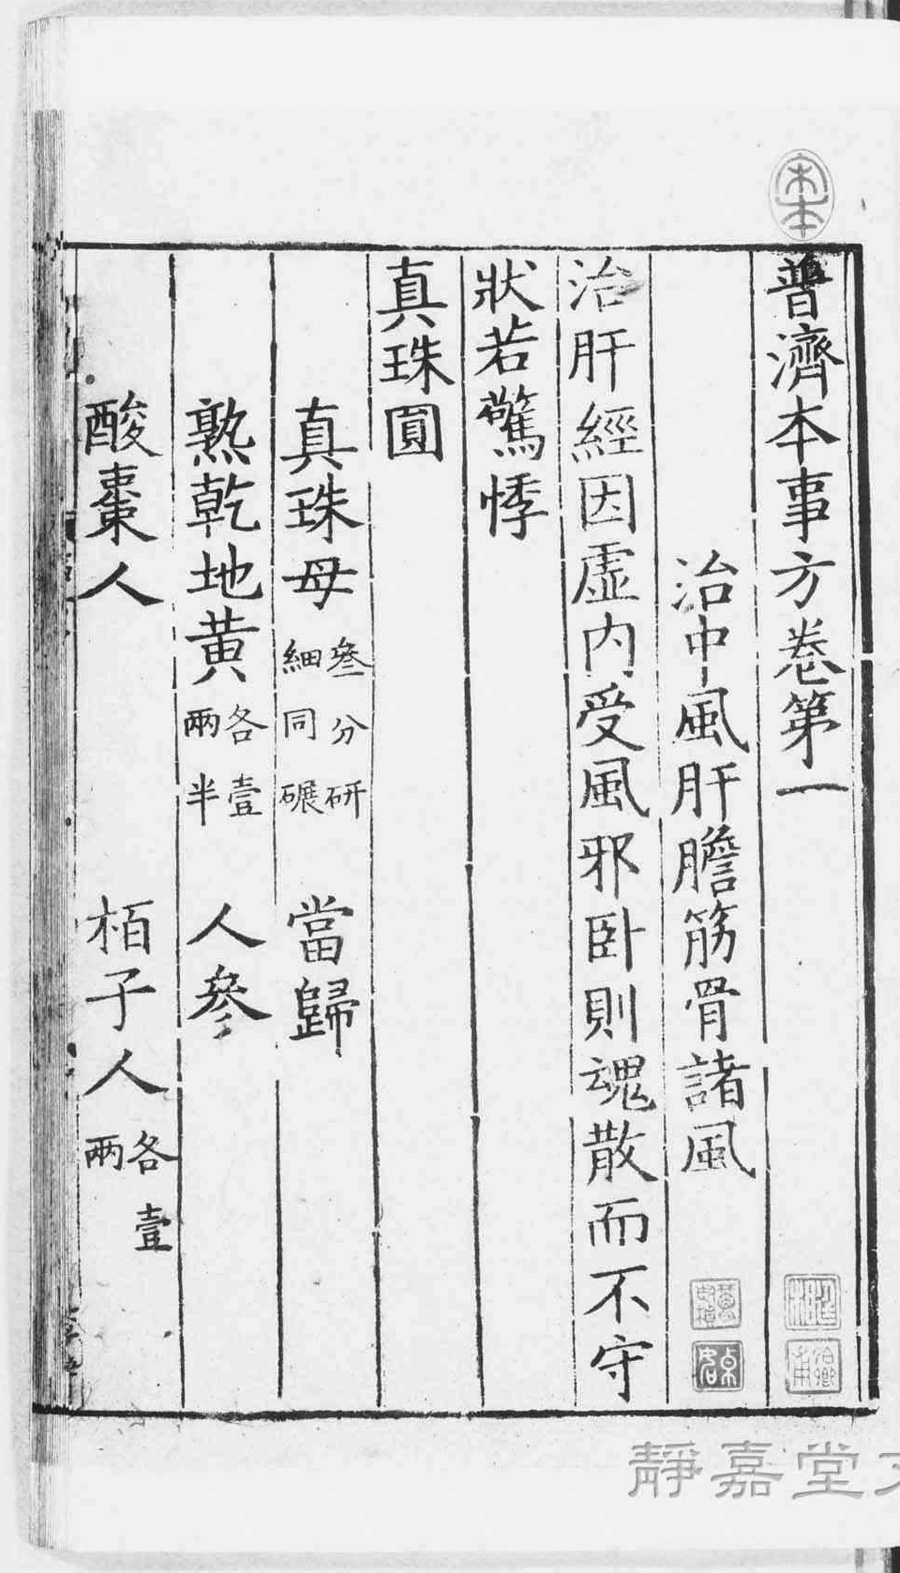 普濟本事方卷第一
治中風肝膽筋骨諸風
治肝經因虛內受風邪卧則魂散而不守
狀若驚悸
真珠圓
真珠母 叄分研細同碾 當歸
熟乾地黃 各壹兩半 人參
酸棗人 栢子人 各壹兩
宋本
靜嘉堂文